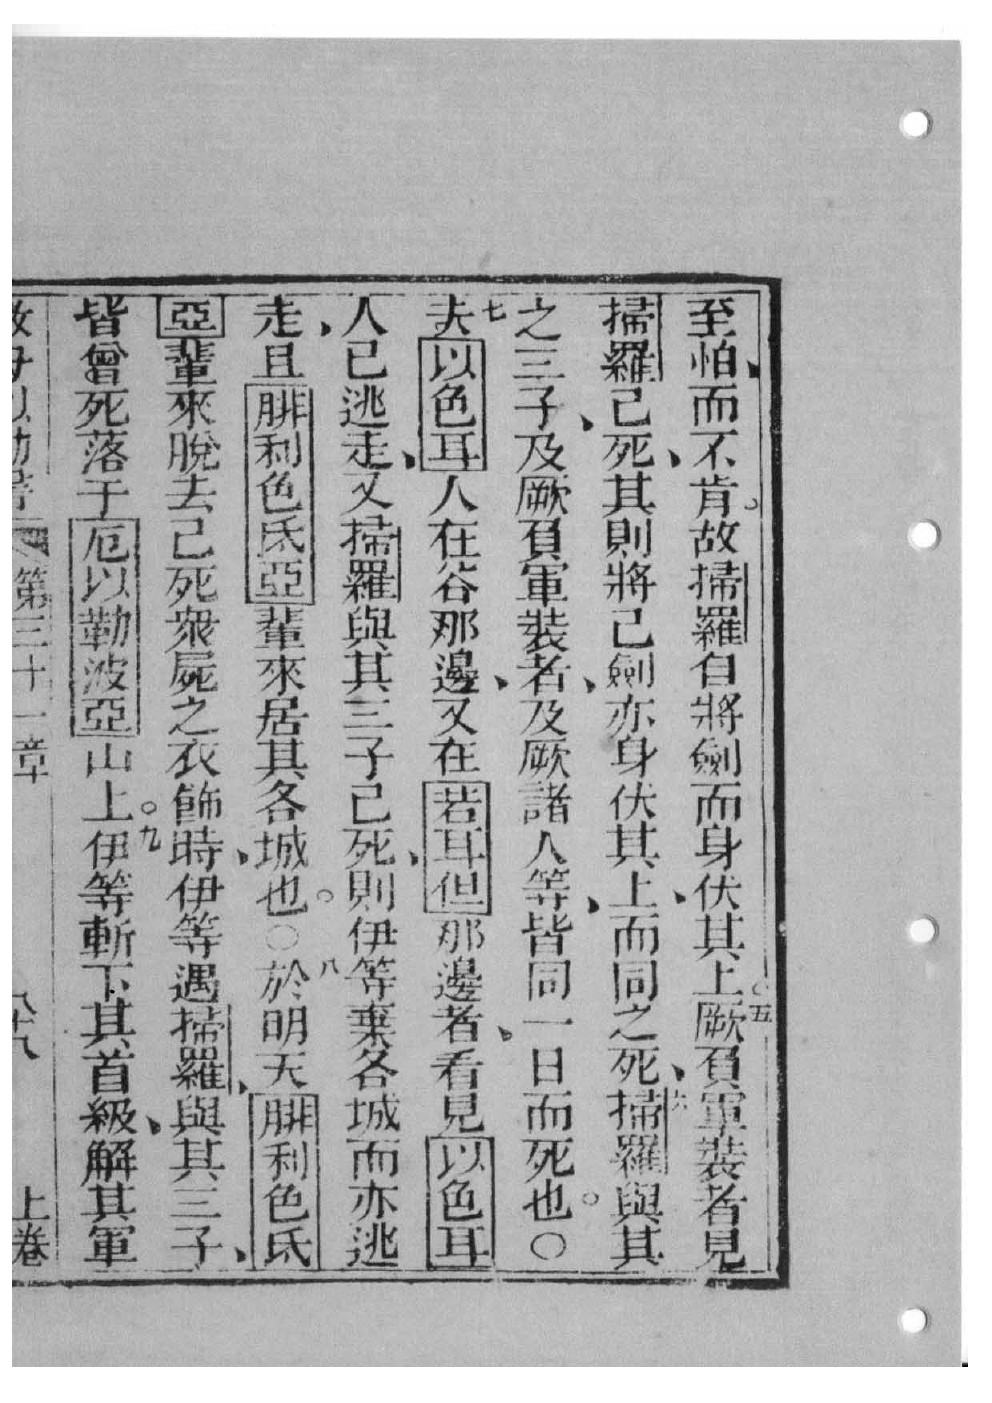 至怕、而不肯。故掃羅自將劍而身伏其上。五厥負軍裝者見
掃羅已死、其則將己劍亦身伏其上、而同之死、六掃羅與其
之三子、及厥負軍裝者、及厥諸人等、皆同一日而死也。○
七夫以色耳人在谷那邊、又在若耳但那邊者、看見以色耳
人已逃走、又掃羅與其三子已死、則伊等棄各城而亦逃
走、且腓利色氐亞輩來居其各城也。○八於明天腓利色氐
亞輩來脫去已死衆屍之衣飾時、伊等遇掃羅、與其三子、
皆曾死落于厄以勒波亞山上。九伊等斬下其首級、解其軍
第三十一章 八十八 上卷